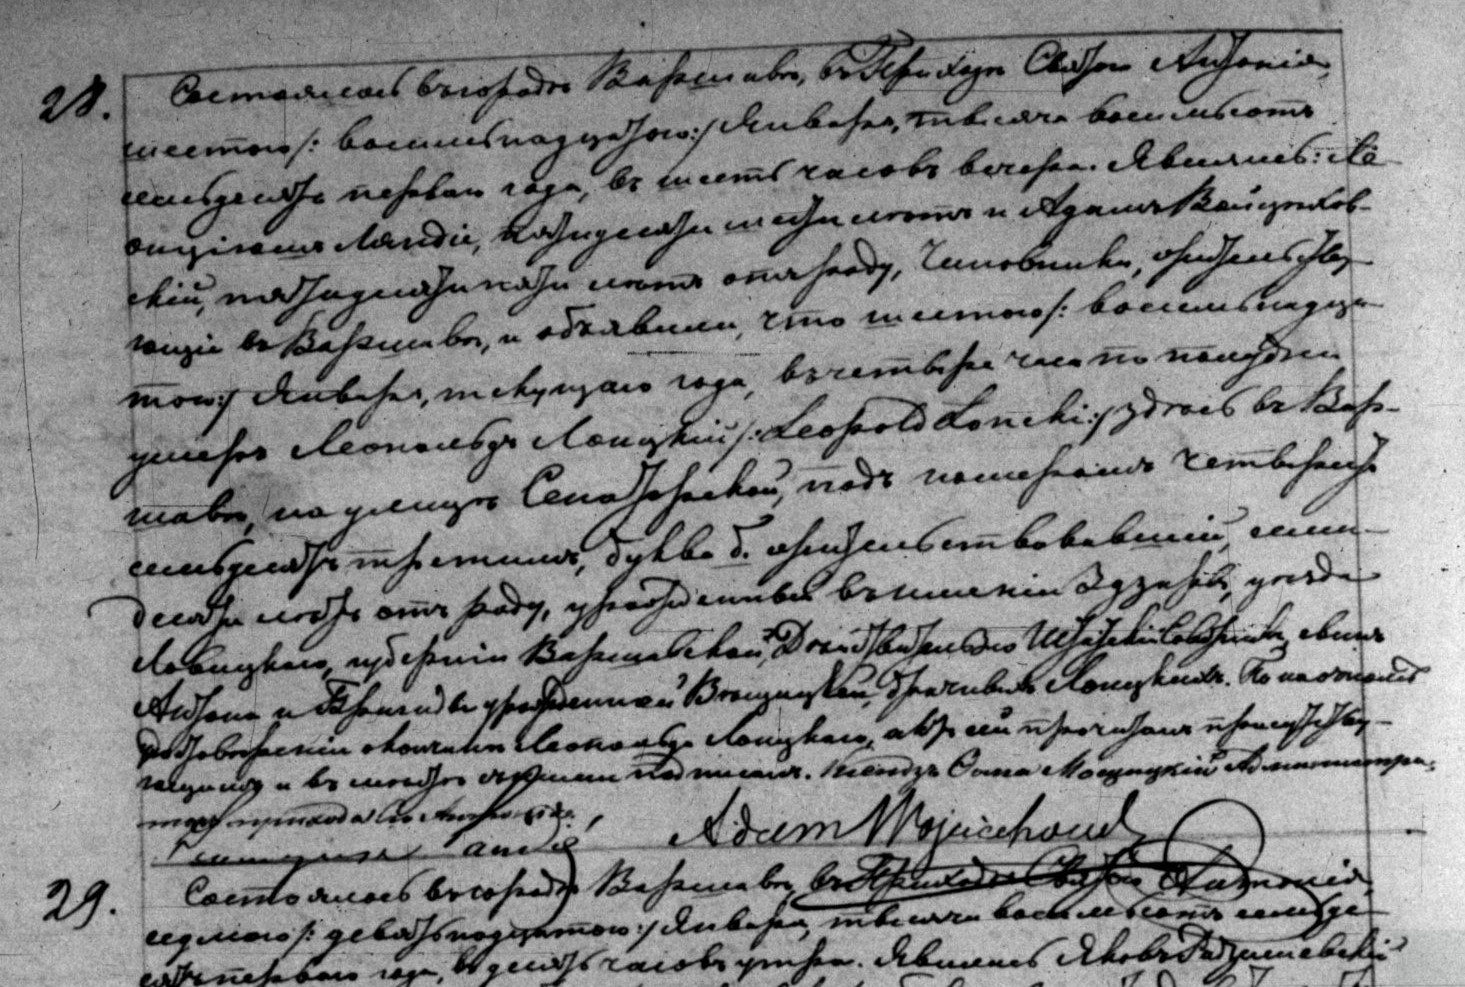 28.
Состоялось въ городѣ Варшавѣ, въ Приходѣ Святого Антонія,
шестого /: восемьнадцатого :/ Января, тысяча восемьсотъ
семьдесятъ перваго года, въ шесть часовъ вечера. Явились:
Ляндіе, пятидесяти шести лѣтъ и Адамъ Войцѣхов-
скій, пятидесяти пяти лѣтъ отъ роду, Чиновники, жительству-
ющіе въ Варшавѣ, и объявили, что шестого /: восемьнадца-
того :/ Января, текущаго года, въ четыре часа по полудни
умеръ Леопольдъ Лонцкій /: Leopold Loncki :/ здѣсь въ Вар-
шавѣ, на улицѣ Сенаторской, подъ номеромъ четыреста
семьдесятъ третьимъ, буква б. жительствовавшій, семи-
десяти лѣтъ отъ роду, урожденный въ имѣніи уѣзда
Ловицкаго, губерніи Варшавской, Дѣйствительный Статскій Совѣтникъ, сынъ
Антона и урожденной брачныхъ Лонцкихъ. По настоящемъ
удостовѣреніи о кончинѣ Леопольда Лонцкаго, актъ сей прочитанъ присутству-
ющимъ и въ мѣстѣ съ ними подписанъ. Ксендзъ Мощицкій Администра-
торъ прихода Св. Антонія.
Adam Wojciechowski
29.
Состоялось въ городѣ Варшавѣ, въ Приходѣ Святого Антонія,
седмого /: девятьнадцатого :/ Января, тысяча восемьсотъ семьде-
сятъ перваго года, въ десять часовъ утра. Явились Яковъ